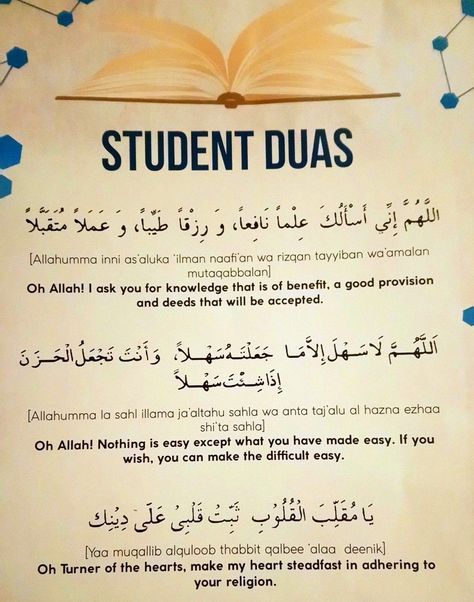 STUDENT DUAS
اللَّهُمَّ إِنِّي أَسْأَلُكَ عِلْماً نَافِعاً، وَ رِزْقاً طَيِّباً، وَ عَمَلاً مُتَقَبَّلاً
[Allahumma inni as'aluka 'ilman naafi'an wa rizqan tayyiban wa'amalan
mutaqabbalan]
Oh Allah! I ask you for knowledge that is of benefit, a good provision
and deeds that will be accepted.
اَللَّهُمَّ لَا سَهْلَ إِلاَّ مَا جَعَلْتَهُ سَهْلاً، وَأَنْتَ تَجْعَلُ الْحَزَنَ
إِذَا شِئْتَ سَهْلاً
[Allahumma la sahl illama ja'altahu sahla wa anta taj'alu al hazna ezhaa
shi'ta sahla]
Oh Allah! Nothing is easy except what you have made easy. If you
wish, you can make the difficult easy.
يَا مُقَلِّبَ الْقُلُوْبِ ثَبِّتْ قَلْبِيْ عَلَى دِيْنِكَ
[Yaa muqallib alquloob thabbit qalbee 'alaa deenik]
Oh Turner of the hearts, make my heart steadfast in adhering to
your religion.